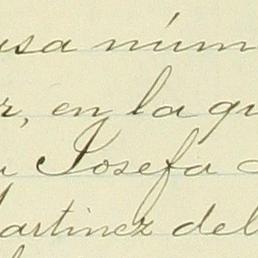 usa núm
r, en la qu
a Josefa
Martinez del